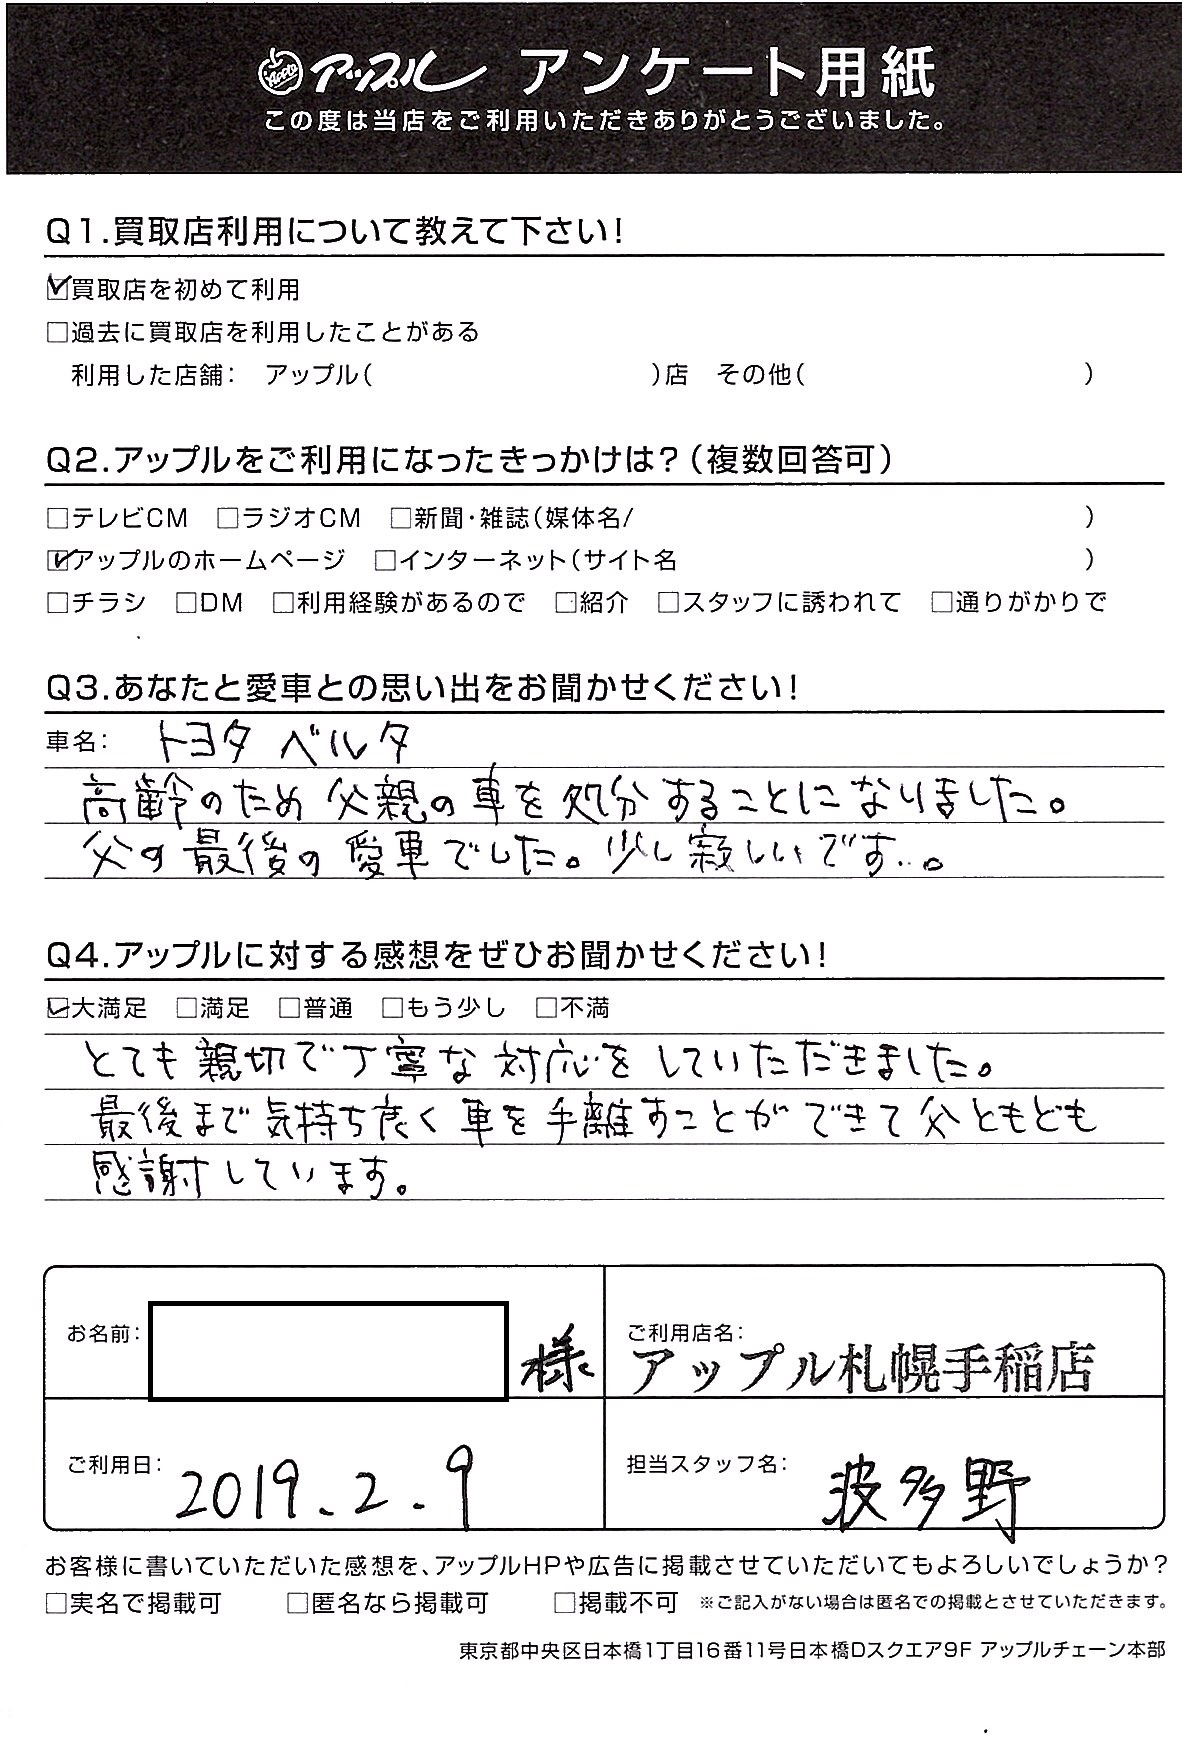 Apple アップル アンケート用紙
この度は当店をご利用いただきありがとうございました。
Q1.買取店利用について教えて下さい!
☑買取店を初めて利用
□過去に買取店を利用したことがある
利用した店舗: アップル( )店 その他( )
Q2.アップルをご利用になったきっかけは?(複数回答可)
□テレビCM □ラジオCM □新聞・雑誌(媒体名/ )
☑アップルのホームページ □インターネット(サイト名 )
□チラシ □DM □利用経験があるので □紹介 □スタッフに誘われて □通りがかりで
Q3.あなたと愛車との思い出をお聞かせください!
車名: トヨタ ベルタ
高齢のため 父親の車を処分することになりました。
父の最後の愛車でした。少し寂しいです…。
Q4.アップルに対する感想をぜひお聞かせください!
☑大満足 □満足 □普通 □もう少し □不満
とても親切で丁寧な対応をしていただきました。
最後まで気持ち良く車を手離すことができて父ともども
感謝しています。
お名前: 様
ご利用店名:
アップル札幌手稲店
ご利用日: 2019.2.9
担当スタッフ名: 波多野
お客様に書いていただいた感想を、アップルHPや広告に掲載させていただいてもよろしいでしょうか?
□実名で掲載可 □匿名なら掲載可 □掲載不可 ※ご記入がない場合は匿名での掲載とさせていただきます。
東京都中央区日本橋1丁目16番11号日本橋Dスクエア9F アップルチェーン本部